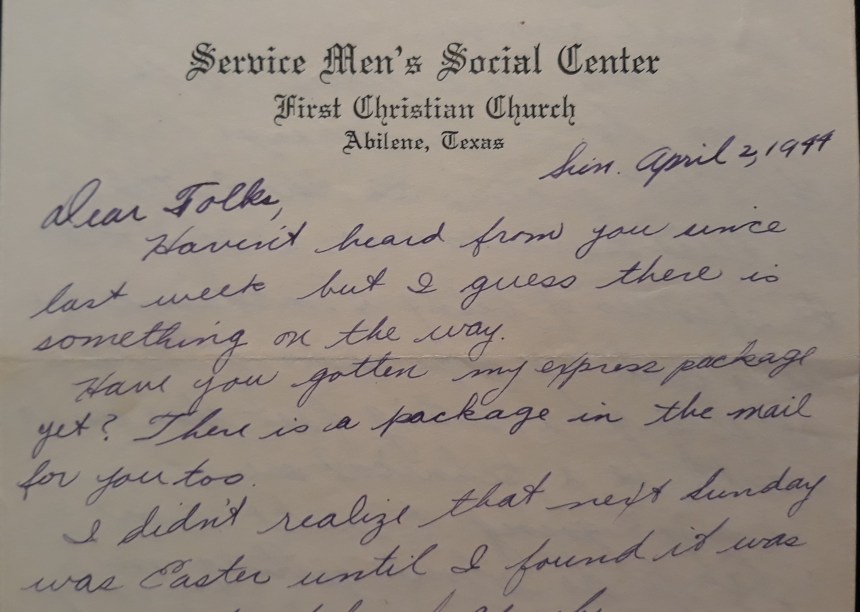 Service Men's Social Center
First Christian Church
Abilene, Texas
Sun. April 2, 1944
Dear Folks,
Haven't heard from you since
last week but I guess there is
something on the way.
Have you gotten my express package
yet? There is a package in the mail
for you too.
I didn't realize that next Sunday
was Easter until I found it was